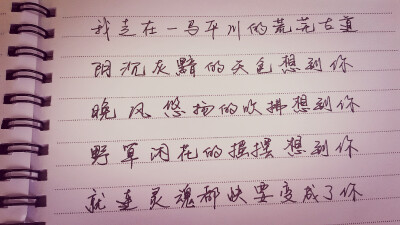 我走在一马平川的荒芜古道
阴沉灰黯的天色想到你
晚风悠扬的吹拂想到你
野草闲花的摇摆想到你
就连灵魂都快要变成了你